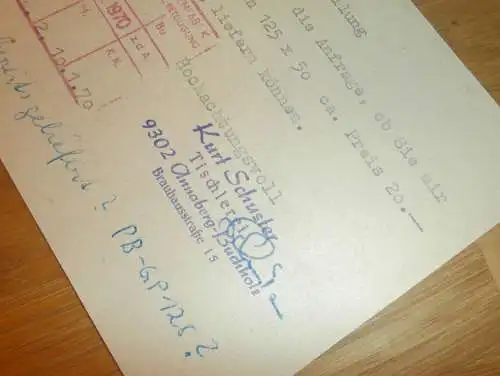 llung
die Anfrage, ob Sie mir
125 x 50 ca. Preis 20.--
liefern können.
Hochachtungsvoll
Kurt Schuster
Tischlerei
9302 Annaberg-Buchholz
Brauhausstraße 15
1970
R.K.
Z.d.A.
Bu
geliefert ? PB-GP-125 ?